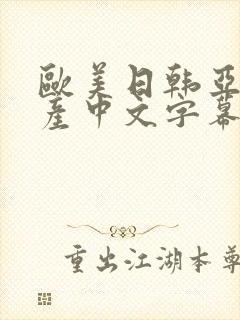 歐美日韩亞
產中文字幕
重出江湖本尊